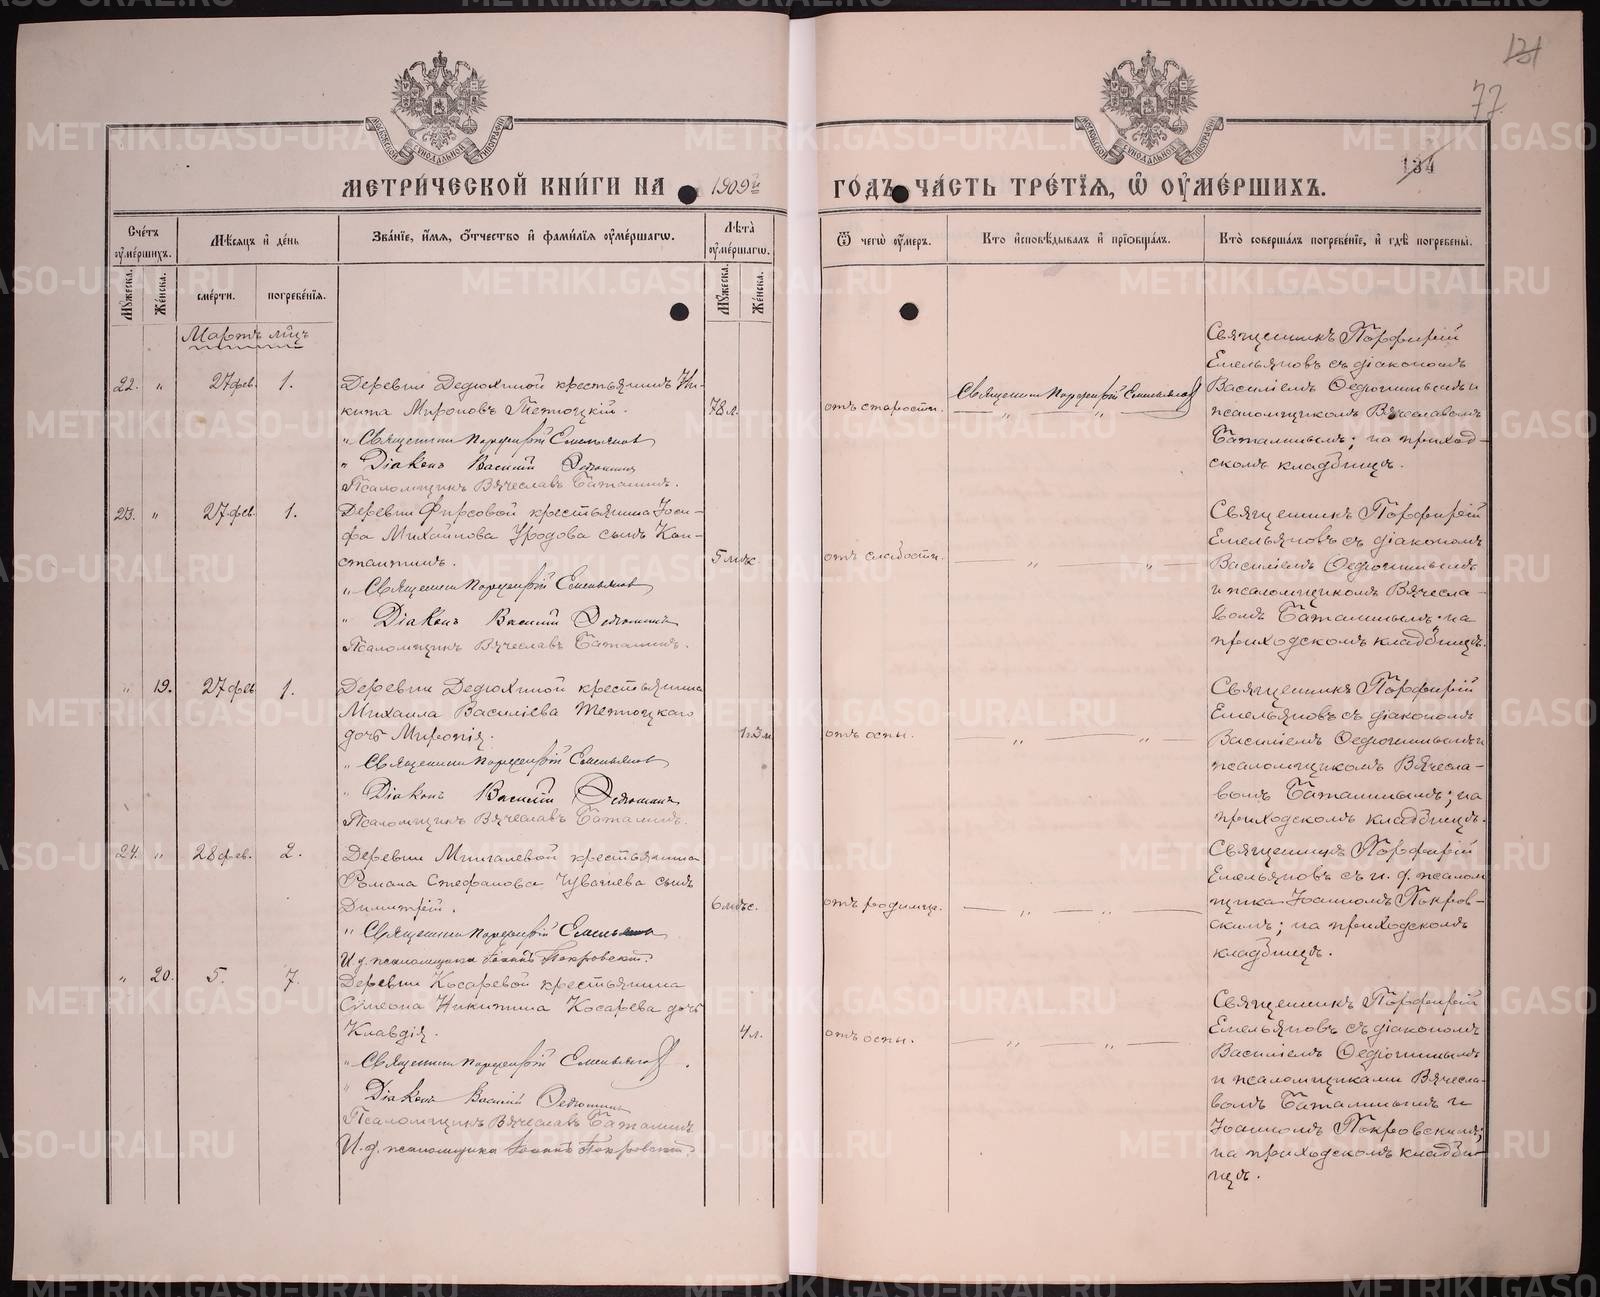 131
77
134
МЕТРИ́ЧЕСКОЙ КНИ́ГИ НА 1909й ГО́ДЪ ЧА́СТЬ ТРЕ́ТЇѦ, Ѡ҆ ОУ҆МЕ́РШИХЪ.
Сче́тъ оу҆ме́ршихъ.
Мꙋжеска.
Же́нска.
Мѣ́сяцъ и҆ де́нь
сме́рти.
погребе́нїѧ.
Зва́нїе, и҆́мѧ, ѻ҆́тчество и҆ фами́лїѧ оу҆ме́ршагѡ.
Лѣ́та оу҆ме́ршагѡ.
Мꙋжеска.
Же́нска.
Ѿ чегѡ̀ оу҆́меръ.
Кто̀ и҆сповѣ́дывалъ и҆ прїѡбща́лъ.
Кто̀ соверша́лъ погребе́нїе, и҆ гдѣ̀ погребены̀.
Мартъ м̃цъ
22. " 27 фев. 1.
Деревни Дедюхиной крестьянинъ Ни-
кита Мироновъ Тетюцкій.
" Священникъ Порфирій Емельяновъ
" Діаконъ Василій Федюшинъ
Псаломщикъ Вячеславъ Баталинъ.
78 л.
отъ старости.
Священникъ Порфирій Емельяновъ
— " — " —
Священникъ Порфирій
Емельяновъ съ діакономъ
Василіемъ Федюшинымъ и
псаломщикомъ Вячеславомъ
Баталинымъ; на приход-
скомъ кладбищѣ.
23. " 27 фев. 1.
Деревни Фирсовой крестьянина Іоси-
фа Михайлова Уродова сынъ Кон-
стантинъ.
" Священникъ Порфирій Емельяновъ
" Діаконъ Василій Федюшинъ
Псаломщикъ Вячеславъ Баталинъ.
5 мѣс.
отъ слабости.
— " — " —
Священникъ Порфирій
Емельяновъ съ діакономъ
Василіемъ Федюшинымъ
и псаломщикомъ Вячесла-
вомъ Баталинымъ; на
приходскомъ кладбищѣ.
" 19. 27 фев 1.
Деревни Дедюхиной крестьянина
Михаила Василіева Тетюцкаго
дочь Миропія.
" Священникъ Порфирій Емельяновъ
" Діаконъ Василій Федюшинъ
Псаломщикъ Вячеславъ Баталинъ.
отъ оспы.
— " — " —
Священникъ Порфирій
Емельяновъ съ діакономъ
Василіемъ Федюшинымъ и
псаломщикомъ Вячесла-
вомъ Баталинымъ; на
приходскомъ кладбищѣ.
24. " 28 фев. 2.
Деревни Мингалевой крестьянина
Романа Стефанова Чувашева сынъ
Димитрій.
" Священникъ Порфирій Емельяновъ
И. д. псаломщика Іоаннъ Покровскій.
6 мѣс.
отъ родимца.
— " — " —
Священникъ Порфирій
Емельяновъ съ и. д. псалом
щика Іоанномъ Покров-
скимъ; на приходскомъ
кладбищѣ.
" 20. 5. 7.
Деревни Косаревой крестьянина
Симеона Никитина Косарева дочь
Клавдія.
" Священникъ Порфирій Емельяновъ.
" Діаконъ Василій Федюшинъ
Псаломщикъ Вячеславъ Баталинъ.
И. д. псаломщика Іоаннъ Покровскій.
4 л.
отъ оспы.
— " — " —
Священникъ Порфирій
Емельяновъ съ діакономъ
Василіемъ Федюшинымъ
и псаломщиками Вячесла-
вомъ Баталинымъ и
Іоанномъ Покровскимъ;
на приходскомъ кладби-
щѣ.
METRIKI.GASO-URAL.RU